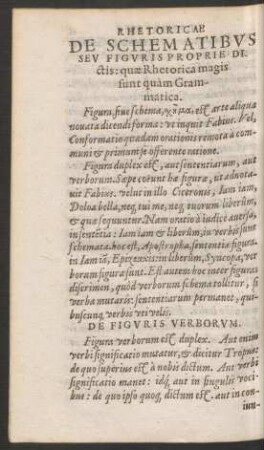 RHETORICAE
DE SCHEMATIBVS
SEV FIGVRIS PROPRIE DI
ctis: quæ Rhetorica magis
sunt quàm Gram-
matica.
Figura, siue schema, est arte aliqua
nouata dicendi forma: vt inquit Fabius. Vel,
Conformatio quædam orationis remota à com-
muni & primùm se offerente ratione.
Figura duplex est, aut sententiarum, aut
verborum. Sæpe coeunt hæ figuræ, vt adnota-
uit Fabius. velut in illo Ciceronis, Iam iam,
Dolabella, neq; tui me, neq; tuorum liberûm,
& quæ sequuntur. Nam oratio à iudice auersa,
in sententia: Iam iam & liberûm, in verbis sunt
schemata. hoc est, Apostropha, sententiæ figura.
in Iam iã, Epizeuxis: in liberûm, Syncopa, ver-
borum figuræ sunt. Est autem hoc inter figuras
discrimen, quòd verborum schema tollitur, si
verba mutaris: sententiarum permanet, qui-
buscunq; verbis vti velis.
DE FIGVRIS VERBORVM.
Figura verborum est duplex. Aut enim
verbi significatio mutatur, & dicitur Tropus:
de quo superius est à nobis dictum. Aut verbi
significatio manet: idq; aut in singulis voci-
bus: de quo ipso quoq; dictum est. aut in con-
iun-